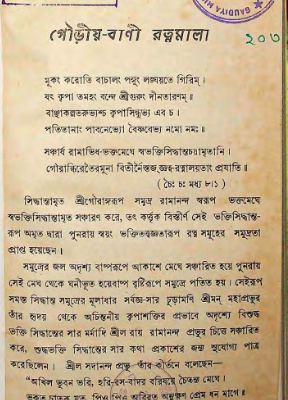 GAUDIYA MI
২০৩
গৌড়ীয়-বাণী রত্নমালা
মূকং করোতি বাচালং পঙ্গুং লঙ্ঘয়তে গিরিম্।
যৎ কৃপা তমহং বন্দে শ্রীগুরুং দীনতারণম্॥
বাঞ্ছাকল্পতরুভ্যশ্চ কৃপাসিন্ধুভ্য এব চ।
পতিতানাং পাবনেভ্যো বৈষ্ণবেভ্য নমো নমঃ॥
সঞ্চার্য রামাভিধ-ভক্তমেঘে স্বভক্তিসিদ্ধান্তচয়ামৃতানি।
গৌরাব্ধিরেতৈরমুনা বিতীর্নৈস্তজ্জ্ঞত্ব-রত্নালয়তাং প্রযাতি॥
( চৈঃ চঃ মধ্য ৮।১ )
সিদ্ধান্তামৃত শ্রীগৌরাঙ্গরূপ সমুদ্র রামানন্দ স্বরূপ ভক্তমেঘে
স্বভক্তিসিদ্ধান্তামৃত সঞ্চারণ করে, তৎ কর্ত্তৃক বিস্তীর্ণ সেই ভক্তিসিদ্ধান্ত-
রূপ অমৃত দ্বারা পুনরায় স্বয়ং ভক্তিতত্ত্বজ্ঞতারূপ রত্ন সমূহের সমুদ্রতা
প্রাপ্ত হয়েছেন।
সমুদ্রের জল অদৃশ্য বাষ্পরূপে আকাশে মেঘে সঞ্চারিত হয়ে পুনরায়
সেই মেঘ থেকে ঘনীভূত হয়েবাষ্প বৃষ্টিরূপে সমুদ্রে পতিত হয়। সেইরূপ
সমস্ত সিদ্ধান্ত সমুদ্রের মূলাধার সর্বজ্ঞ-সার চূড়ামণি শ্রীমন্ মহাপ্রভুর
তাঁর হৃদয় থেকে অচিন্তনীয় কৃপাশক্তির প্রভাবে অদৃশ্যে বিশুদ্ধ
ভক্তি সিদ্ধান্তের সার মর্মাদি শ্রীল রায় রামানন্দ প্রভুর চিত্তে সঞ্চারিত
করে, শুদ্ধভক্তি সিদ্ধান্তের সার কথা প্রকাশের জন্য সুযোগ্য পাত্র
করেছিলেন। শ্রীল সদানন্দ প্রভু তাঁর কীর্তনে বলেছেন—
"অখিল ভুবন ভরি, হরি-রস-বাদর বরিষয়ে চৈতন্য মেঘে।
ভকত চাতক যত, পিও পিও অবিরত অনুক্ষণ প্রেম ধন মাগে॥